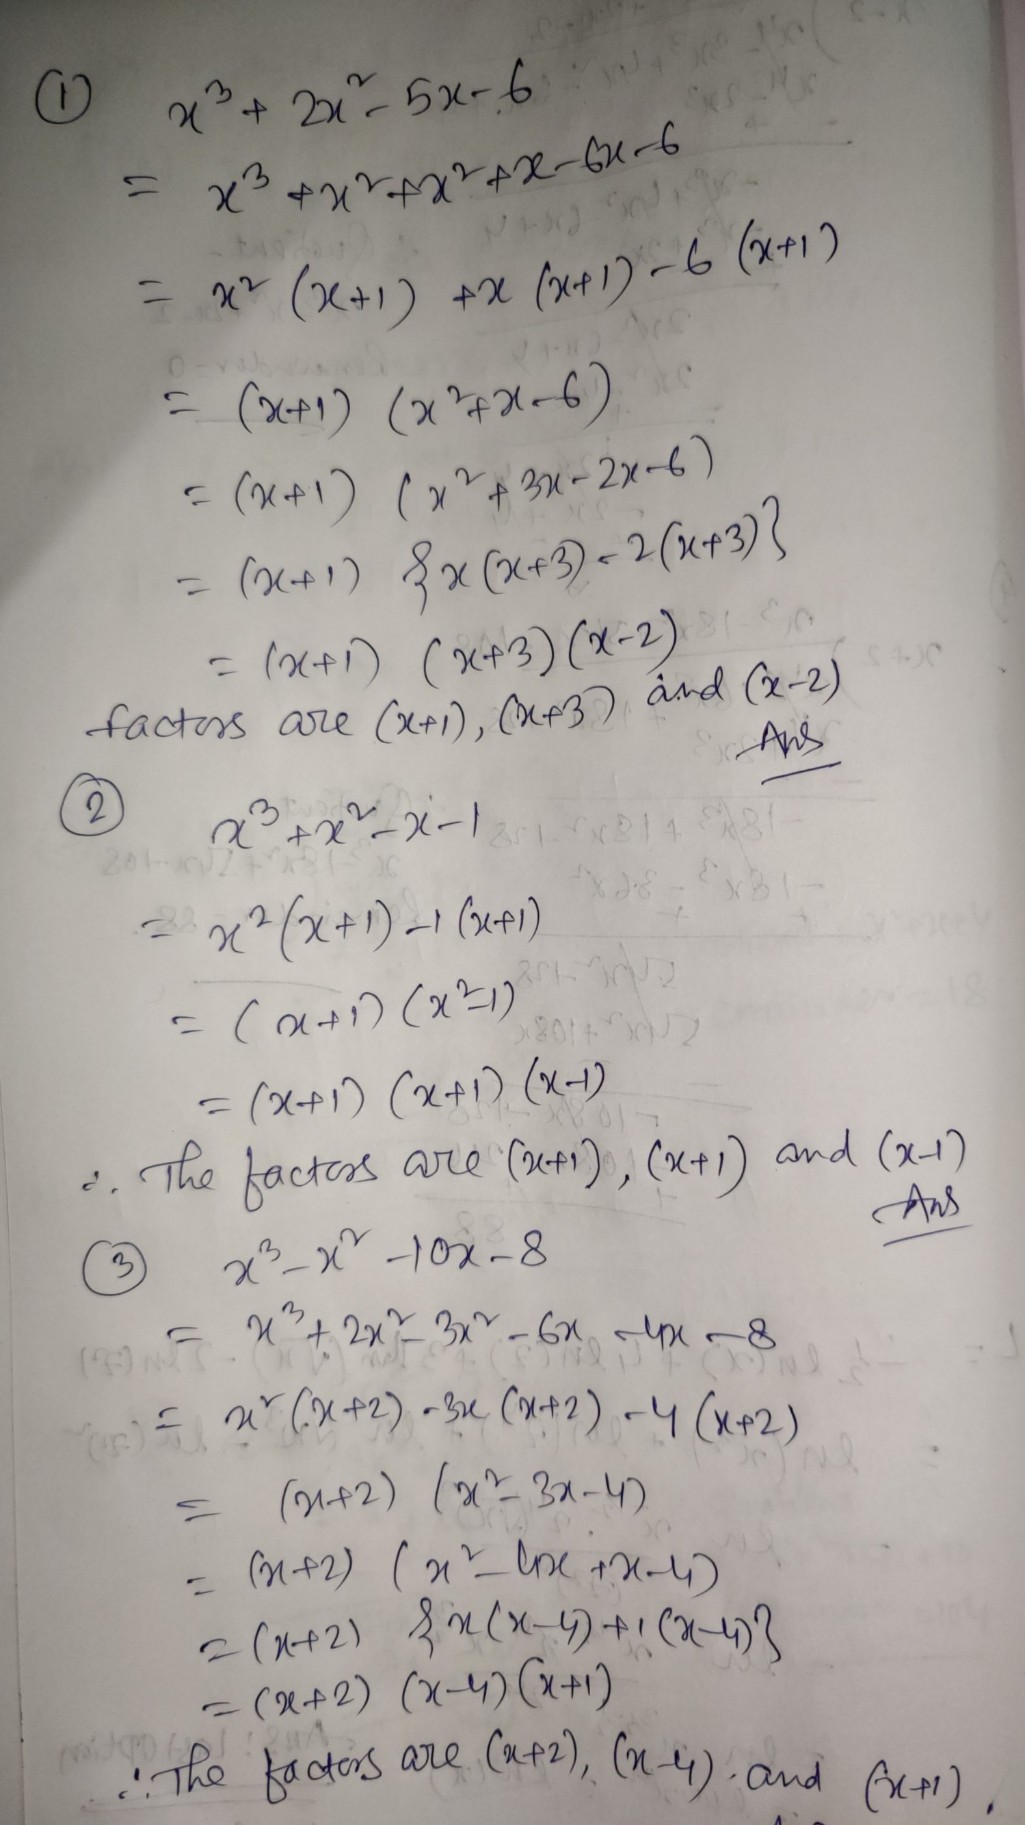 ① x³ + 2x² - 5x - 6
= x³ + x² + x² + x - 6x - 6
= x² (x+1) + x (x+1) - 6 (x+1)
= (x+1) (x² + x - 6)
= (x+1) (x² + 3x - 2x - 6)
= (x+1) {x (x+3) - 2(x+3)}
= (x+1) (x+3) (x-2)
factors are (x+1), (x+3) and (x-2)
Ans
② x³ + x² - x - 1
= x² (x+1) - 1 (x+1)
= (x+1) (x²-1)
= (x+1) (x+1) (x-1)
∴ The factors are (x+1), (x+1) and (x-1)
Ans
③ x³ - x² - 10x - 8
= x³ + 2x² - 3x² - 6x - 4x - 8
= x² (x+2) - 3x (x+2) - 4 (x+2)
= (x+2) (x² - 3x - 4)
= (x+2) (x² - 4x + x - 4)
= (x+2) {x(x-4) + 1(x-4)}
= (x+2) (x-4) (x+1)
∴ The factors are (x+2), (x-4) and (x+1).